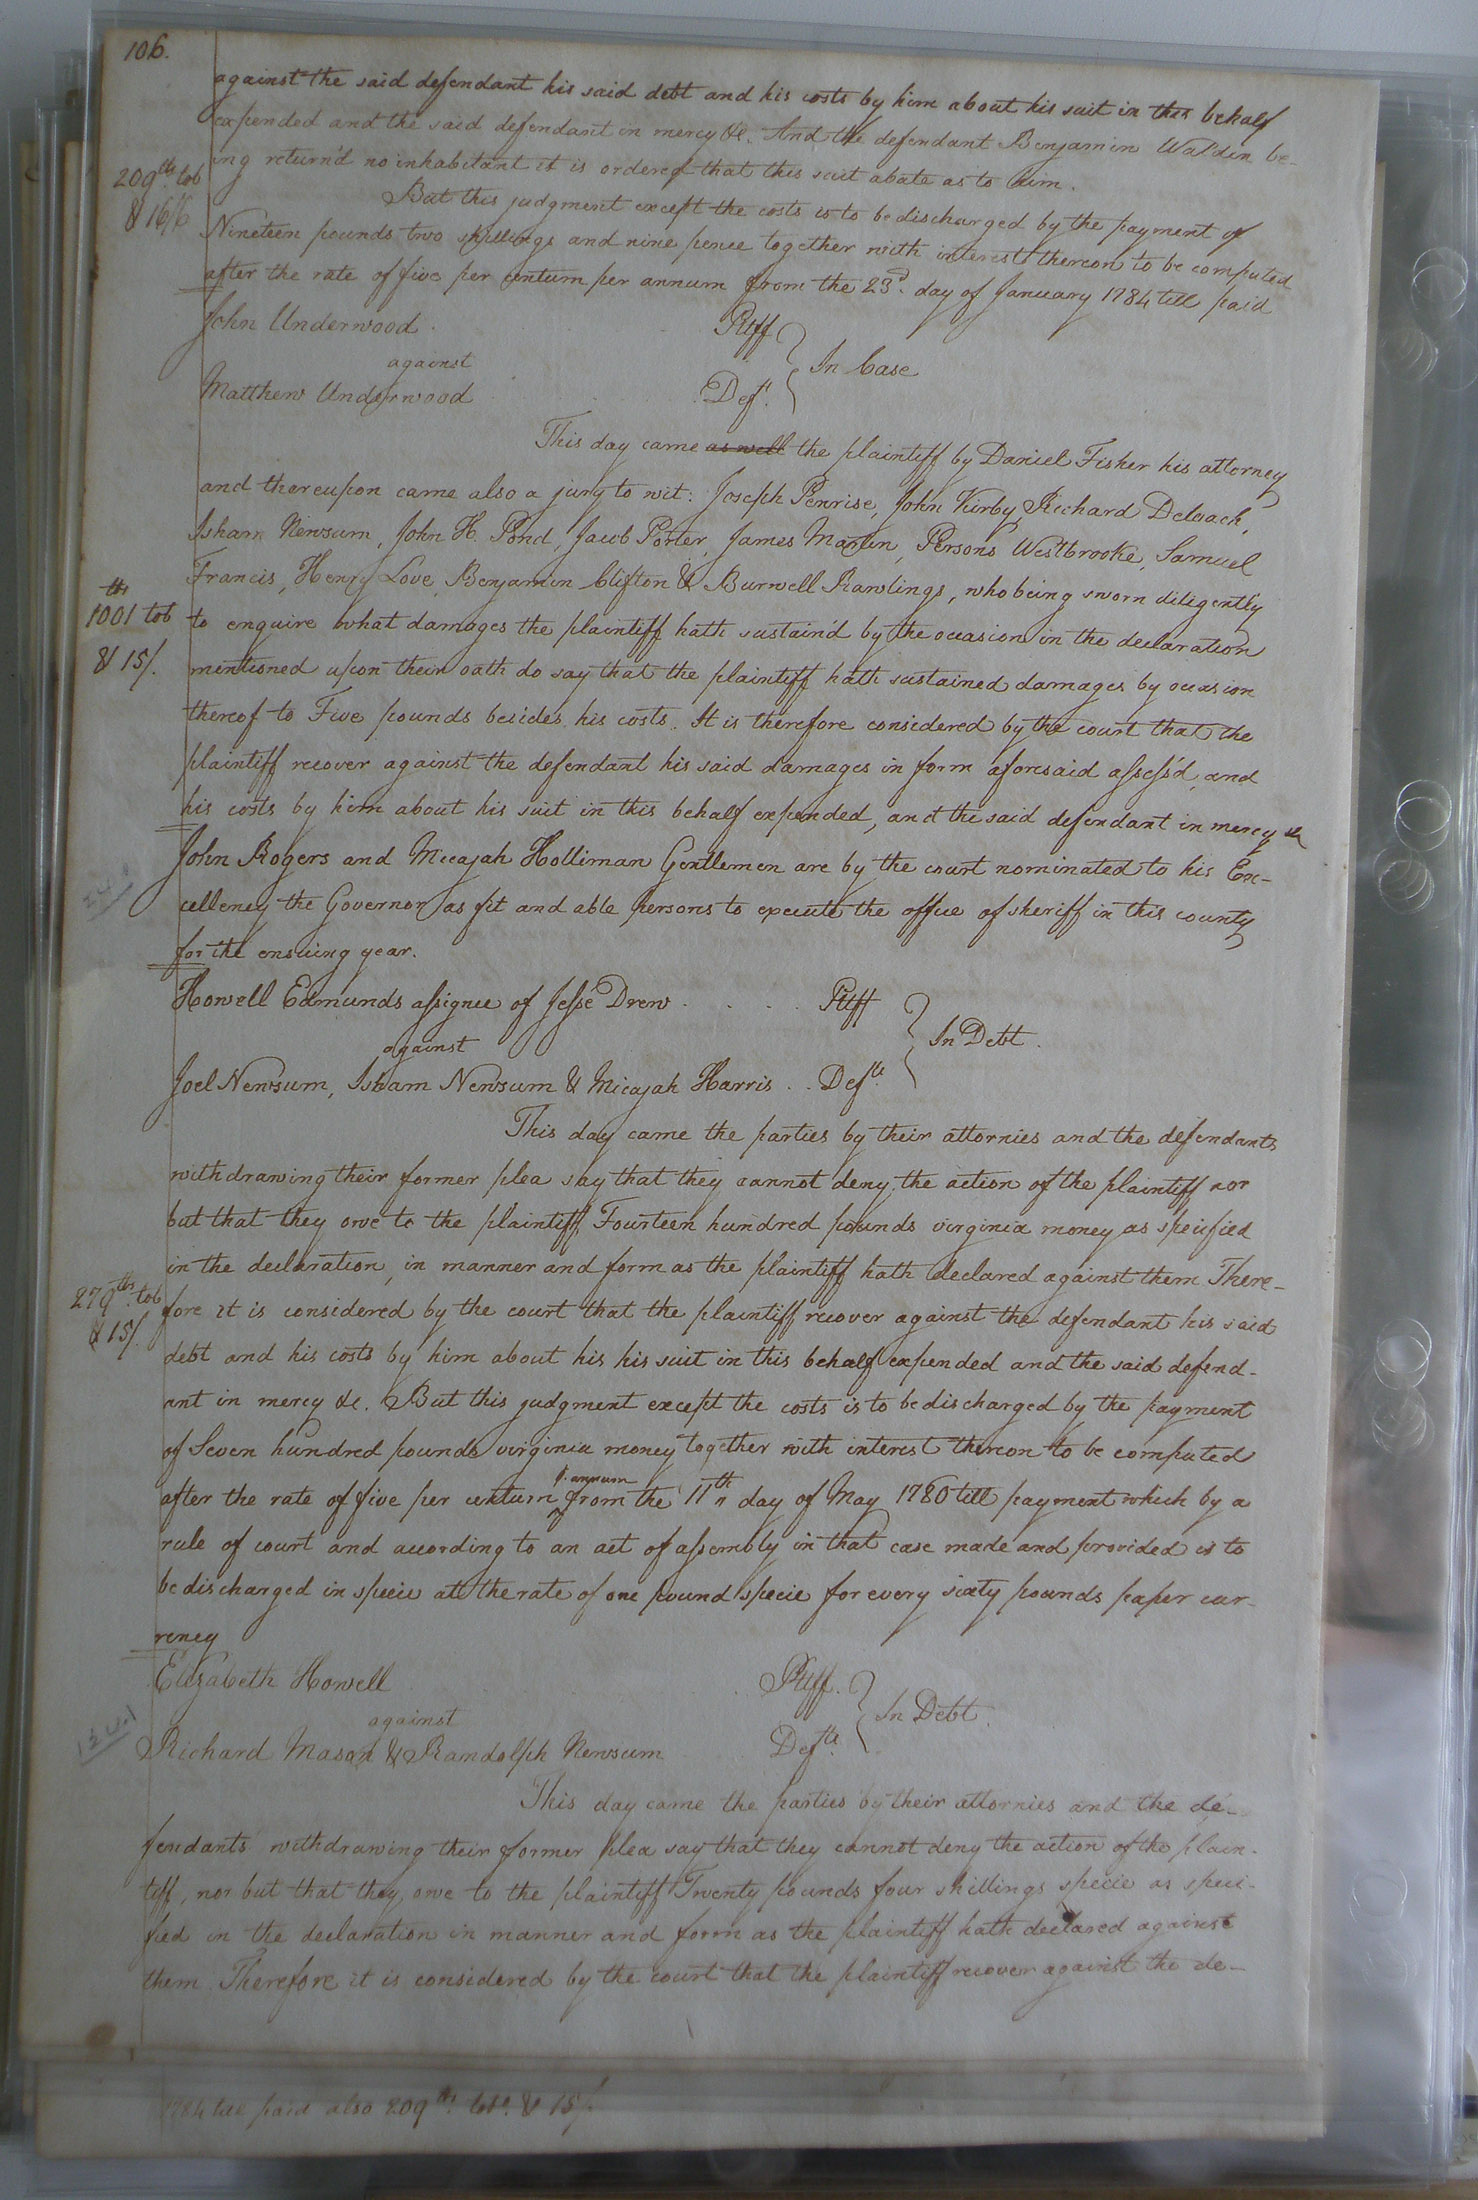 106.
against the said defendant his said debt and his costs by him about his suit in this behalf
expended and the said defendant in mercy &c. And the defendant Benjamin Waldin be-
ing return'd no inhabitant it is ordered that this suit abate as to him.
209 lbs. tob
& 16/6
But this judgment except the costs is to be discharged by the payment of
Nineteen pounds two shillings and nine pence together with interest thereon to be computed
after the rate of five per centum per annum from the 23d. day of January 1784 till paid
John Underwood Pltff
against
In Case
Matthew Underwood Deft.
This day came as well the plaintiff by Daniel Fisher his attorney
and thereupon came also a jury to wit: Joseph Penrise, John Kirby, Richard Deloach,
Isham Newsum, John H. Pond, Jacob Porter, James Martin, Persons Westbrooke, Samuel
Francis, Henry Love, Benjamin Clifton & Burwell Rawlings, who being sworn diligently
lbs
1001 tob
& 15/.
to enquire what damages the plaintiff hath sustain'd by the occasion in the declaration
mentioned upon their oath do say that the plaintiff hath sustained damages by occasion
thereof to Five pounds besides his costs. It is therefore considered by the court that the
plaintiff recover against the defendant his said damages in form aforesaid assess'd, and
his costs by him about his suit in this behalf expended, and the said defendant in mercy &c
John Rogers and Micajah Holliman Gentlemen are by the court nominated to his Ex-
cellency the Governor as fit and able persons to execute the office of sheriff in this county
for the ensuing year.
Howell Edmunds assignee of Jesse Drew . . . . Pltff
against
In Debt.
Joel Newsum, Isham Newsum & Micajah Harris . . Defts.
This day came the parties by their attornies and the defendants
withdrawing their former plea say that they cannot deny the action of the plaintiff nor
but that they owe to the plaintiff Fourteen hundred pounds virginia money as specified
in the declaration, in manner and form as the plaintiff hath declared against them There-
279 lbs. tob
& 15/.
fore it is considered by the court that the plaintiff recover against the defendant his said
debt and his costs by him about his his suit in this behalf expended and the said defend-
ant in mercy &c. But this judgment except the costs is to be discharged by the payment
of Seven hundred pounds virginia money together with interest thereon to be computed
after the rate of five per centum p. annum from the 11th day of May 1780 till payment which by a
rule of court and according to an act of assembly in that case made and provided is to
be discharged in specie att the rate of one pound specie for every sixty pounds paper cur-
rency
Elizabeth Howell Pltff.
against
In Debt.
Richard Mason & Randolph Newsum Defts.
This day came the parties by their attornies and the de-
fendants withdrawing their former plea say that they cannot deny the action of the plain-
tiff, nor but that they owe to the plaintiff Twenty pounds four shillings specie as speci-
fied in the declaration in manner and form as the plaintiff hath declared against
them Therefore it is considered by the court that the plaintiff recover against the de-
1784 till paid also 209 lbs. tobo. & 15/.